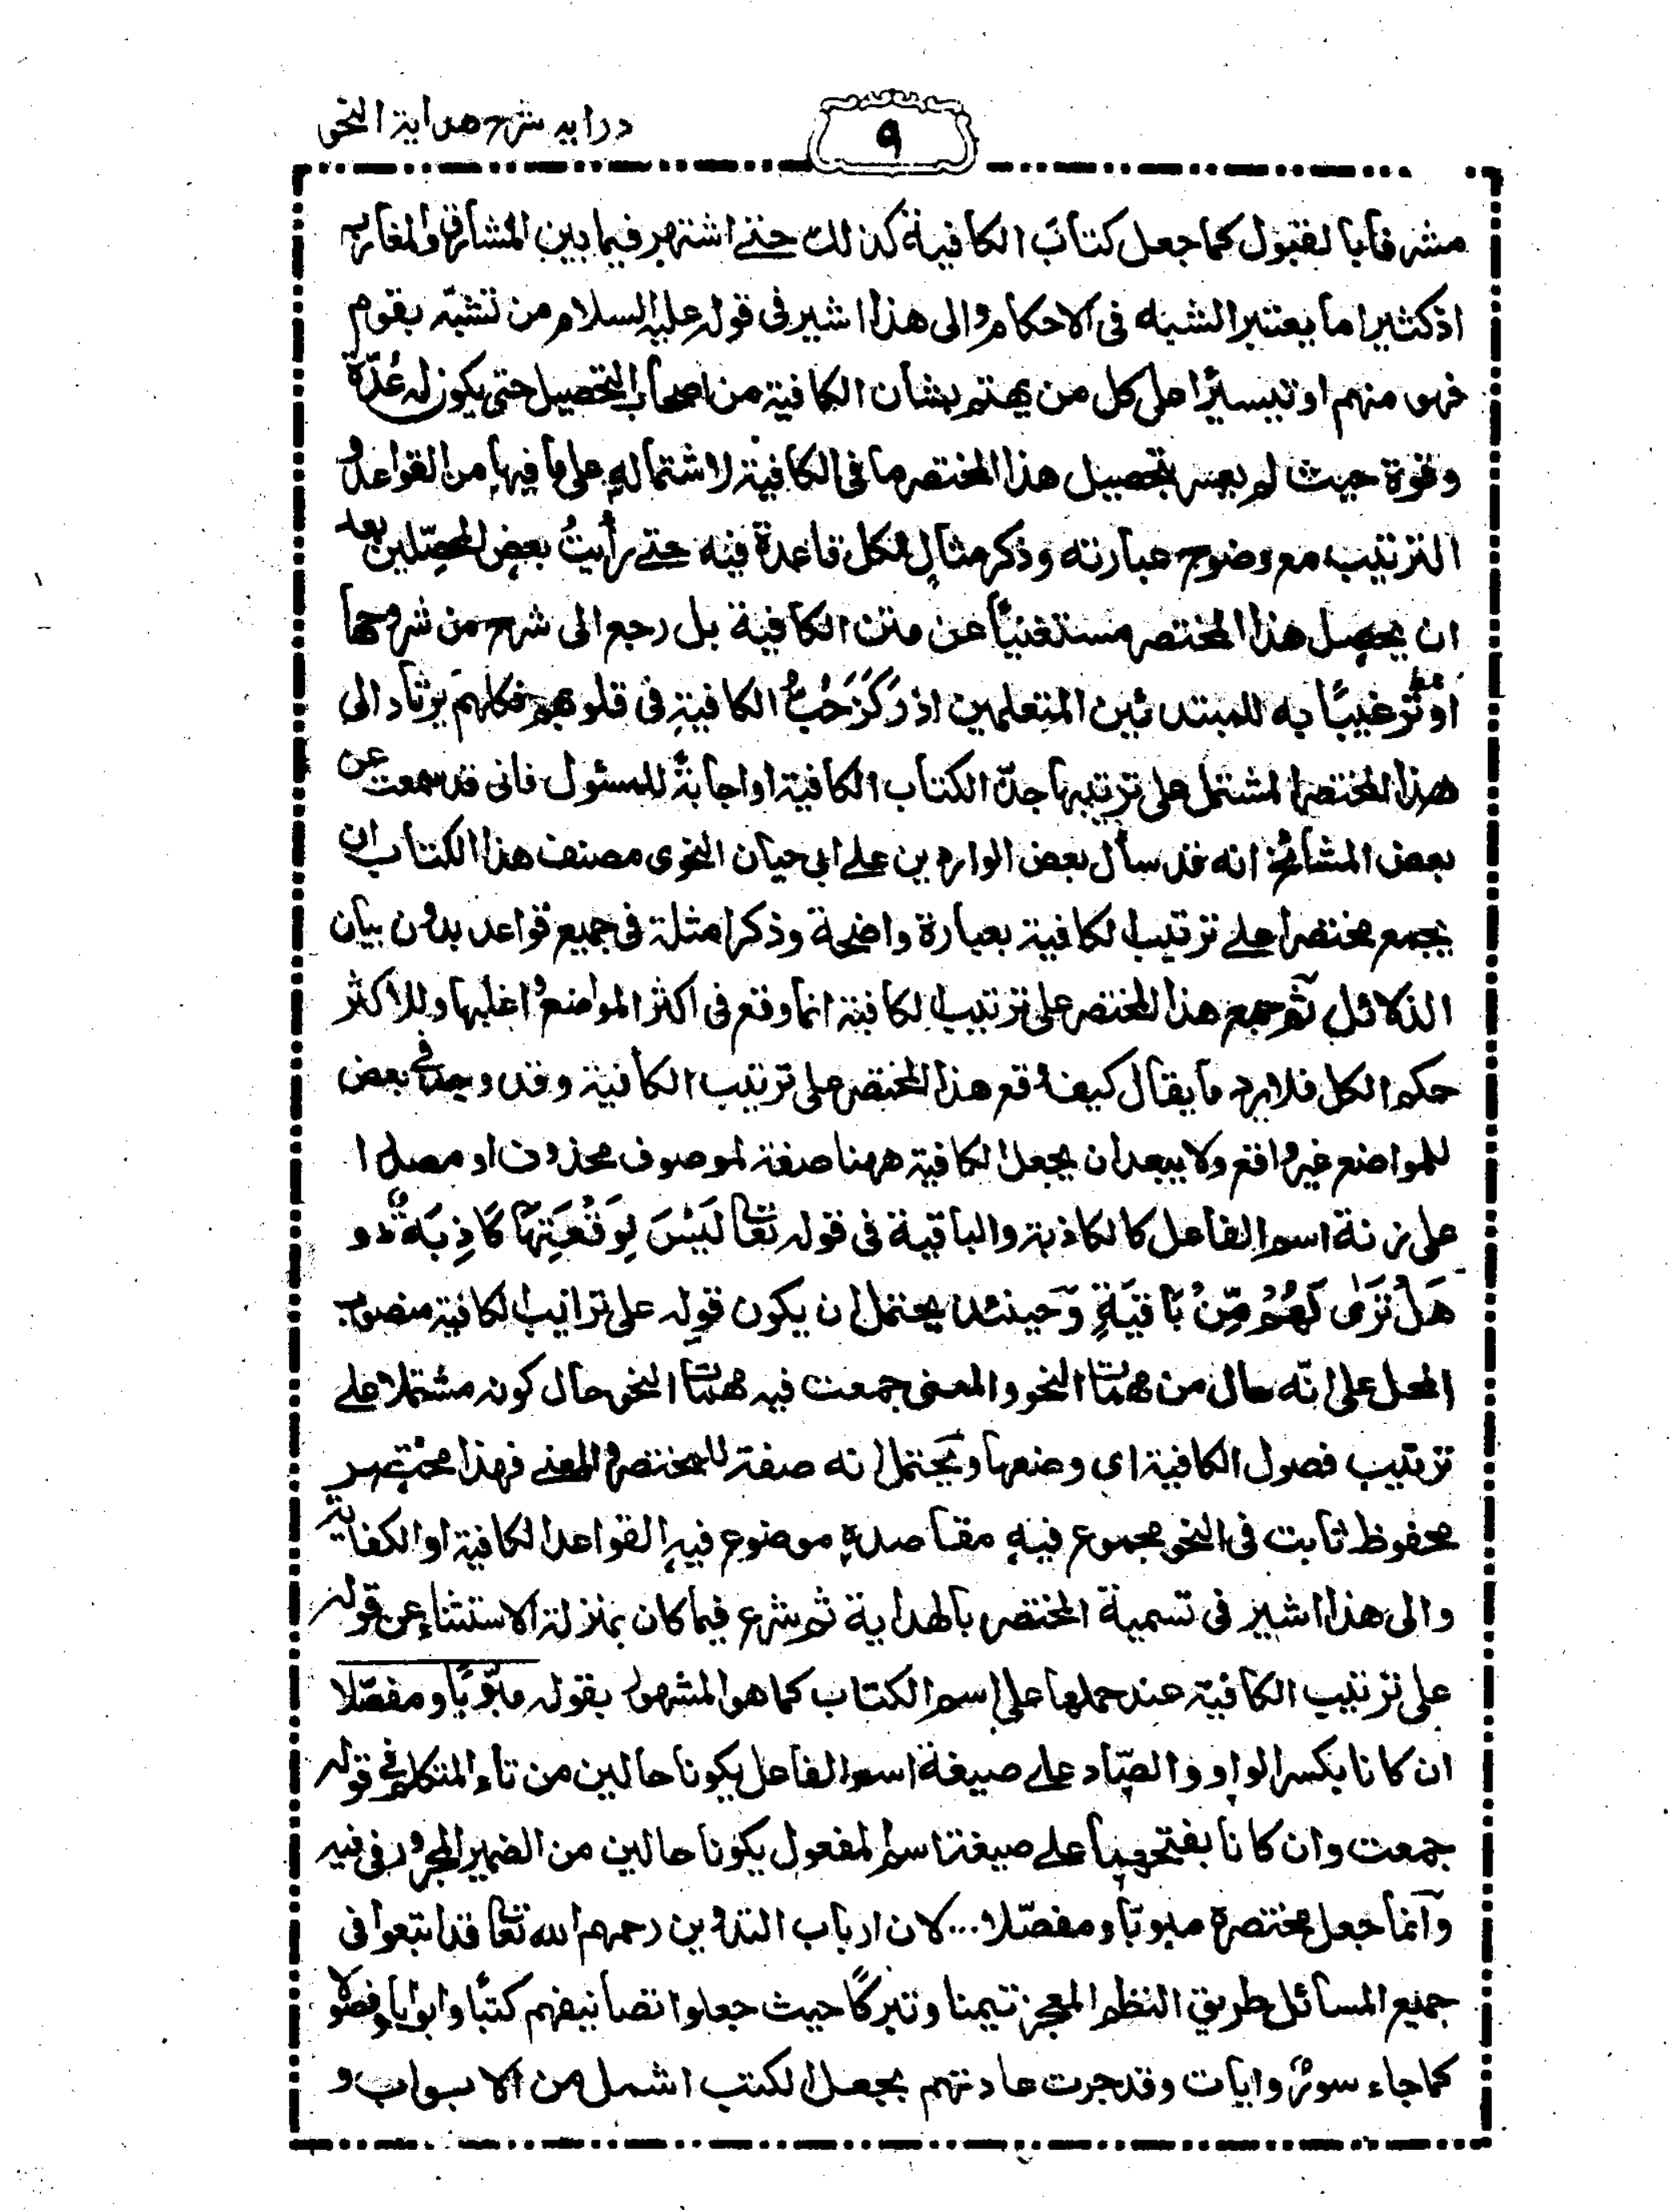 درايه شرح هداية النحو
٩
مشرفا بالقبول كما جعل كتاب الكافية كذلك حتے اشتهر فيما بين المشارق والمغارب
اذ كثيرا ما يعتبر الشبه فى الاحكام والى هذا اشير فى قوله عليه السلام من تشبّه بقوم
فهو منهم او تيسيرًا على كل من يهتم بشأن الكافية من اصحاب التحصيل حتى يكون له عُدّة
وقوة حيث لم يعسر بتحصيل هذا المختصر ما فى الكافية لاشتماله على ما فيها من القواعد و
الترتيب مع وضوح عبارته وذكر مثال لكل قاعدة فيه حتے رأيتُ بعض المحصّلين بعد
ان يحصل هذا المختصر مستغنيًا عن متن الكافية بل رجع الى شرح من شروحها
او ترغيبًا به للمبتدئين المتعلمين اذ رَكَزَ حُبُّ الكافية فى قلوبهم فكلهم يرتاد الى
هذا المختصر المشتمل على ترتيبها جدّ الكتاب الكافية او اجابةً للمسئول فانى قد سمعت عن
بعض المشائخ انه قد سأل بعض الواردين علے ابى حيان النحوى مصنف هذا الكتاب ان
يجمع مختصرا علے ترتيب الكافية بعبارة واضحة وذكر امثلة فى جميع قواعد بدون بيان
الدلائل ثم جمع هذا المختصر على ترتيب الكافية انما وقع فى اكثر المواضع و اغلبها وللاكثر
حكم الكل فلا يرد ما يقال كيف وقع هذا المختصر على ترتيب الكافية وقد وجد فے بعض
المواضع غير واقع ولا يبعد ان يجعل الكافية ههنا صفة لموصوف محذوف او مصدرا
على زنة اسم الفاعل كالكاذبة والباقية فى قوله تعا لَيْسَ لِوَقْعَتِهَا كَاذِبَةٌ و
هَلْ تَرٰى لَهُمْ مِّنْ بَاقِيَةٍ وحينئذ يحتمل ان يكون قوله على ترتيب الكافية منصوب
المحل على انّه حال من مهمات النحو والمعنى جمعت فيه مهمات النحو حال كونه مشتملا علے
ترتيب فصول الكافية اى وضعها ويحتمل انه صفة للمختصر والمعنے فهذا مختصر
محفوظ ثابت فى النحو مجموع فيه مقاصده موضوع فيه القواعد الكافية او الكفاية
والى هذا اشير فى تسمية المختصر بالهداية ثم شرع فيما كان بمنزلة الاستثناء عن قوله
على ترتيب الكافية عند حملها على اسم الكتاب كما هو المشهور بقوله مبوّبًا ومفصّلا
ان كانا بكسر الواو والصّاد علے صيغة اسم الفاعل يكونا حالين من تاء المتكلم فے قوله
جمعت وان كانا بفتحهما علے صيغة اسم المفعول يكونا حالين من الضمير المجرور فى فيه
وانما جعل مختصره مبوبًا ومفصّلا... لان ارباب التدوين رحمهم الله تعا قد اتبعوا فى
جميع المسائل طريق النظم المعجز تيمنا وتبركًا حيث جعلوا تصانيفهم كتبًا وابوابا وفصولا
كما جاء سورٌ وايات وقد جرت عادتهم بجعل الكتب اشمل من الابواب و